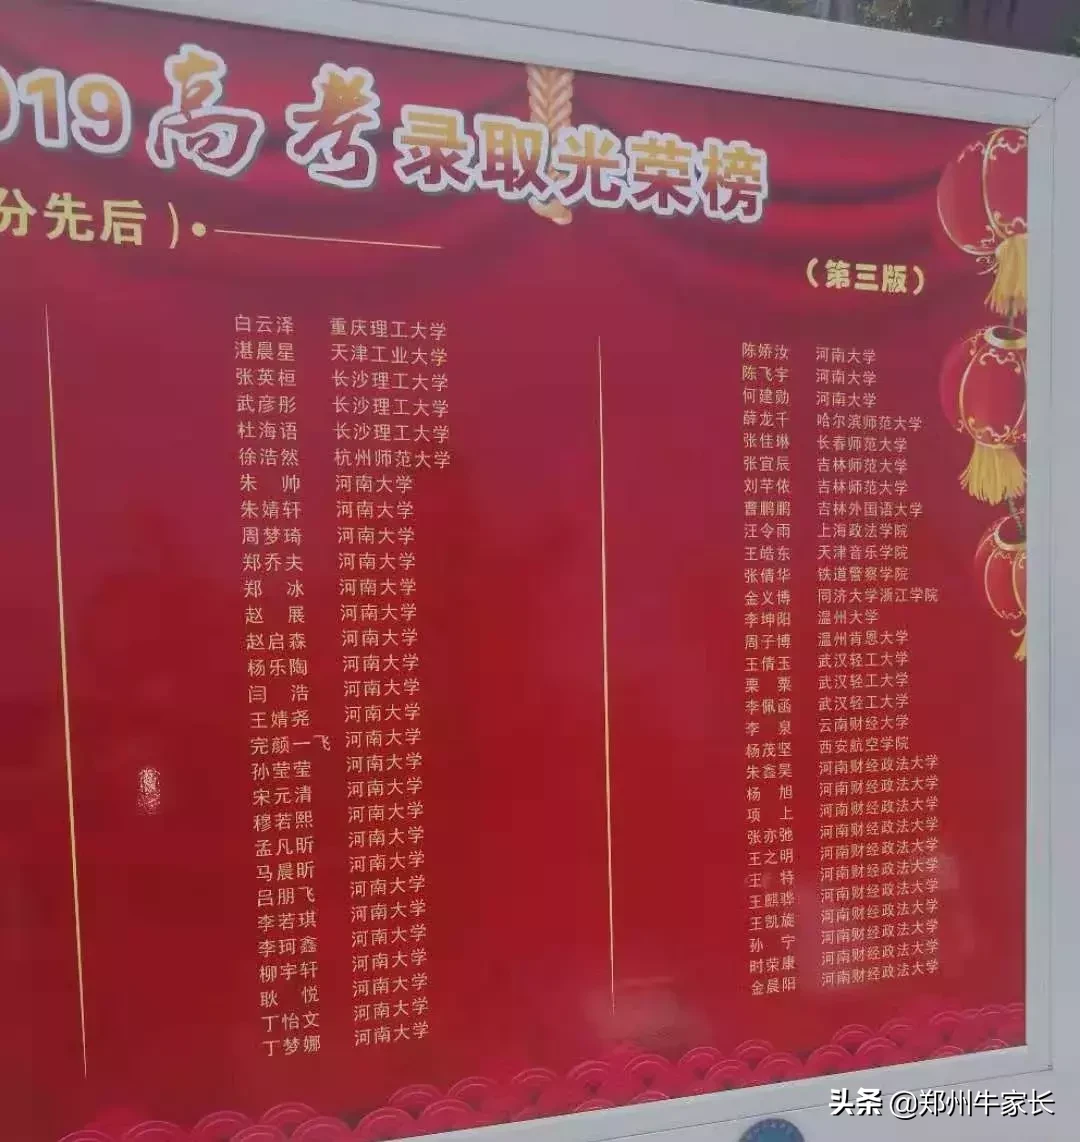 019高考录取光荣榜
分先后）
（第三版）
白云泽 重庆理工大学
湛晨星 天津工业大学
张英桓 长沙理工大学
武彦彤 长沙理工大学
杜海语 长沙理工大学
徐浩然 杭州师范大学
朱 帅 河南大学
朱婧轩 河南大学
周梦琦 河南大学
郑乔夫 河南大学
郑 冰 河南大学
赵 展 河南大学
赵启森 河南大学
杨乐陶 河南大学
闫 浩 河南大学
王婧尧 河南大学
完颜一飞 河南大学
孙莹莹 河南大学
宋元清 河南大学
穆若熙 河南大学
孟凡昕 河南大学
马晨昕 河南大学
吕朋飞 河南大学
李若琪 河南大学
李珂鑫 河南大学
柳宇轩 河南大学
耿 悦 河南大学
丁怡文 河南大学
丁梦娜 河南大学
陈娇汝 河南大学
陈飞宇 河南大学
何建勋 河南大学
薛龙千 哈尔滨师范大学
张佳琳 长春师范大学
张宜辰 吉林师范大学
刘芊依 吉林师范大学
曹鹏鹏 吉林外国语大学
汪令雨 上海政法学院
王皓东 天津音乐学院
张倩华 铁道警察学院
金义博 同济大学浙江学院
李坤阳 温州大学
周子博 温州肯恩大学
王倩玉 武汉轻工大学
栗 粟 武汉轻工大学
李佩函 武汉轻工大学
李 泉 云南财经大学
杨茂坚 西安航空学院
朱鑫昊 河南财经政法大学
杨 旭 河南财经政法大学
项 上 河南财经政法大学
张亦弛 河南财经政法大学
王之明 河南财经政法大学
王 特 河南财经政法大学
王麒骅 河南财经政法大学
王凯旋 河南财经政法大学
孙 宁 河南财经政法大学
时荣康 河南财经政法大学
金晨阳 河南财经政法大学
头条 @郑州牛家长